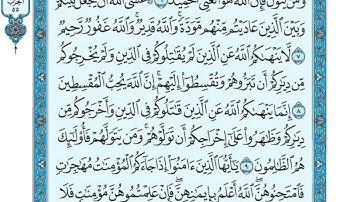 وَمَن يَتَوَلَّ فَإِنَّ ٱللَّهَ هُوَ ٱلْغَنِىُّ ٱلْحَمِيدُ ٦ عَسَى ٱللَّهُ أَن يَجْعَلَ بَيْنَكُمْ
وَبَيْنَ ٱلَّذِينَ عَادَيْتُم مِّنْهُم مَّوَدَّةً وَٱللَّهُ قَدِيرٌ وَٱللَّهُ غَفُورٌ رَّحِيمٌ
٧ لَّا يَنْهَىٰكُمُ ٱللَّهُ عَنِ ٱلَّذِينَ لَمْ يُقَٰتِلُوكُمْ فِى ٱلدِّينِ وَلَمْ يُخْرِجُوكُم
مِّن دِيَٰرِكُمْ أَن تَبَرُّوهُمْ وَتُقْسِطُوٓا۟ إِلَيْهِمْ إِنَّ ٱللَّهَ يُحِبُّ ٱلْمُقْسِطِينَ
٨ إِنَّمَا يَنْهَىٰكُمُ ٱللَّهُ عَنِ ٱلَّذِينَ قَٰتَلُوكُمْ فِى ٱلدِّينِ وَأَخْرَجُوكُم مِّن
دِيَٰرِكُمْ وَظَٰهَرُوا۟ عَلَىٰٓ إِخْرَاجِكُمْ أَن تَوَلَّوْهُمْ وَمَن يَتَوَلَّهُمْ فَأُو۟لَٰٓئِكَ
هُمُ ٱلظَّٰلِمُونَ ٩ يَٰٓأَيُّهَا ٱلَّذِينَ ءَامَنُوٓا۟ إِذَا جَآءَكُمُ ٱلْمُؤْمِنَٰتُ مُهَٰجِرَٰتٍ
فَٱمْتَحِنُوهُنَّ ٱللَّهُ أَعْلَمُ بِإِيمَٰنِهِنَّ فَإِنْ عَلِمْتُمُوهُنَّ مُؤْمِنَٰتٍ فَلَا
الحزب
٥٥